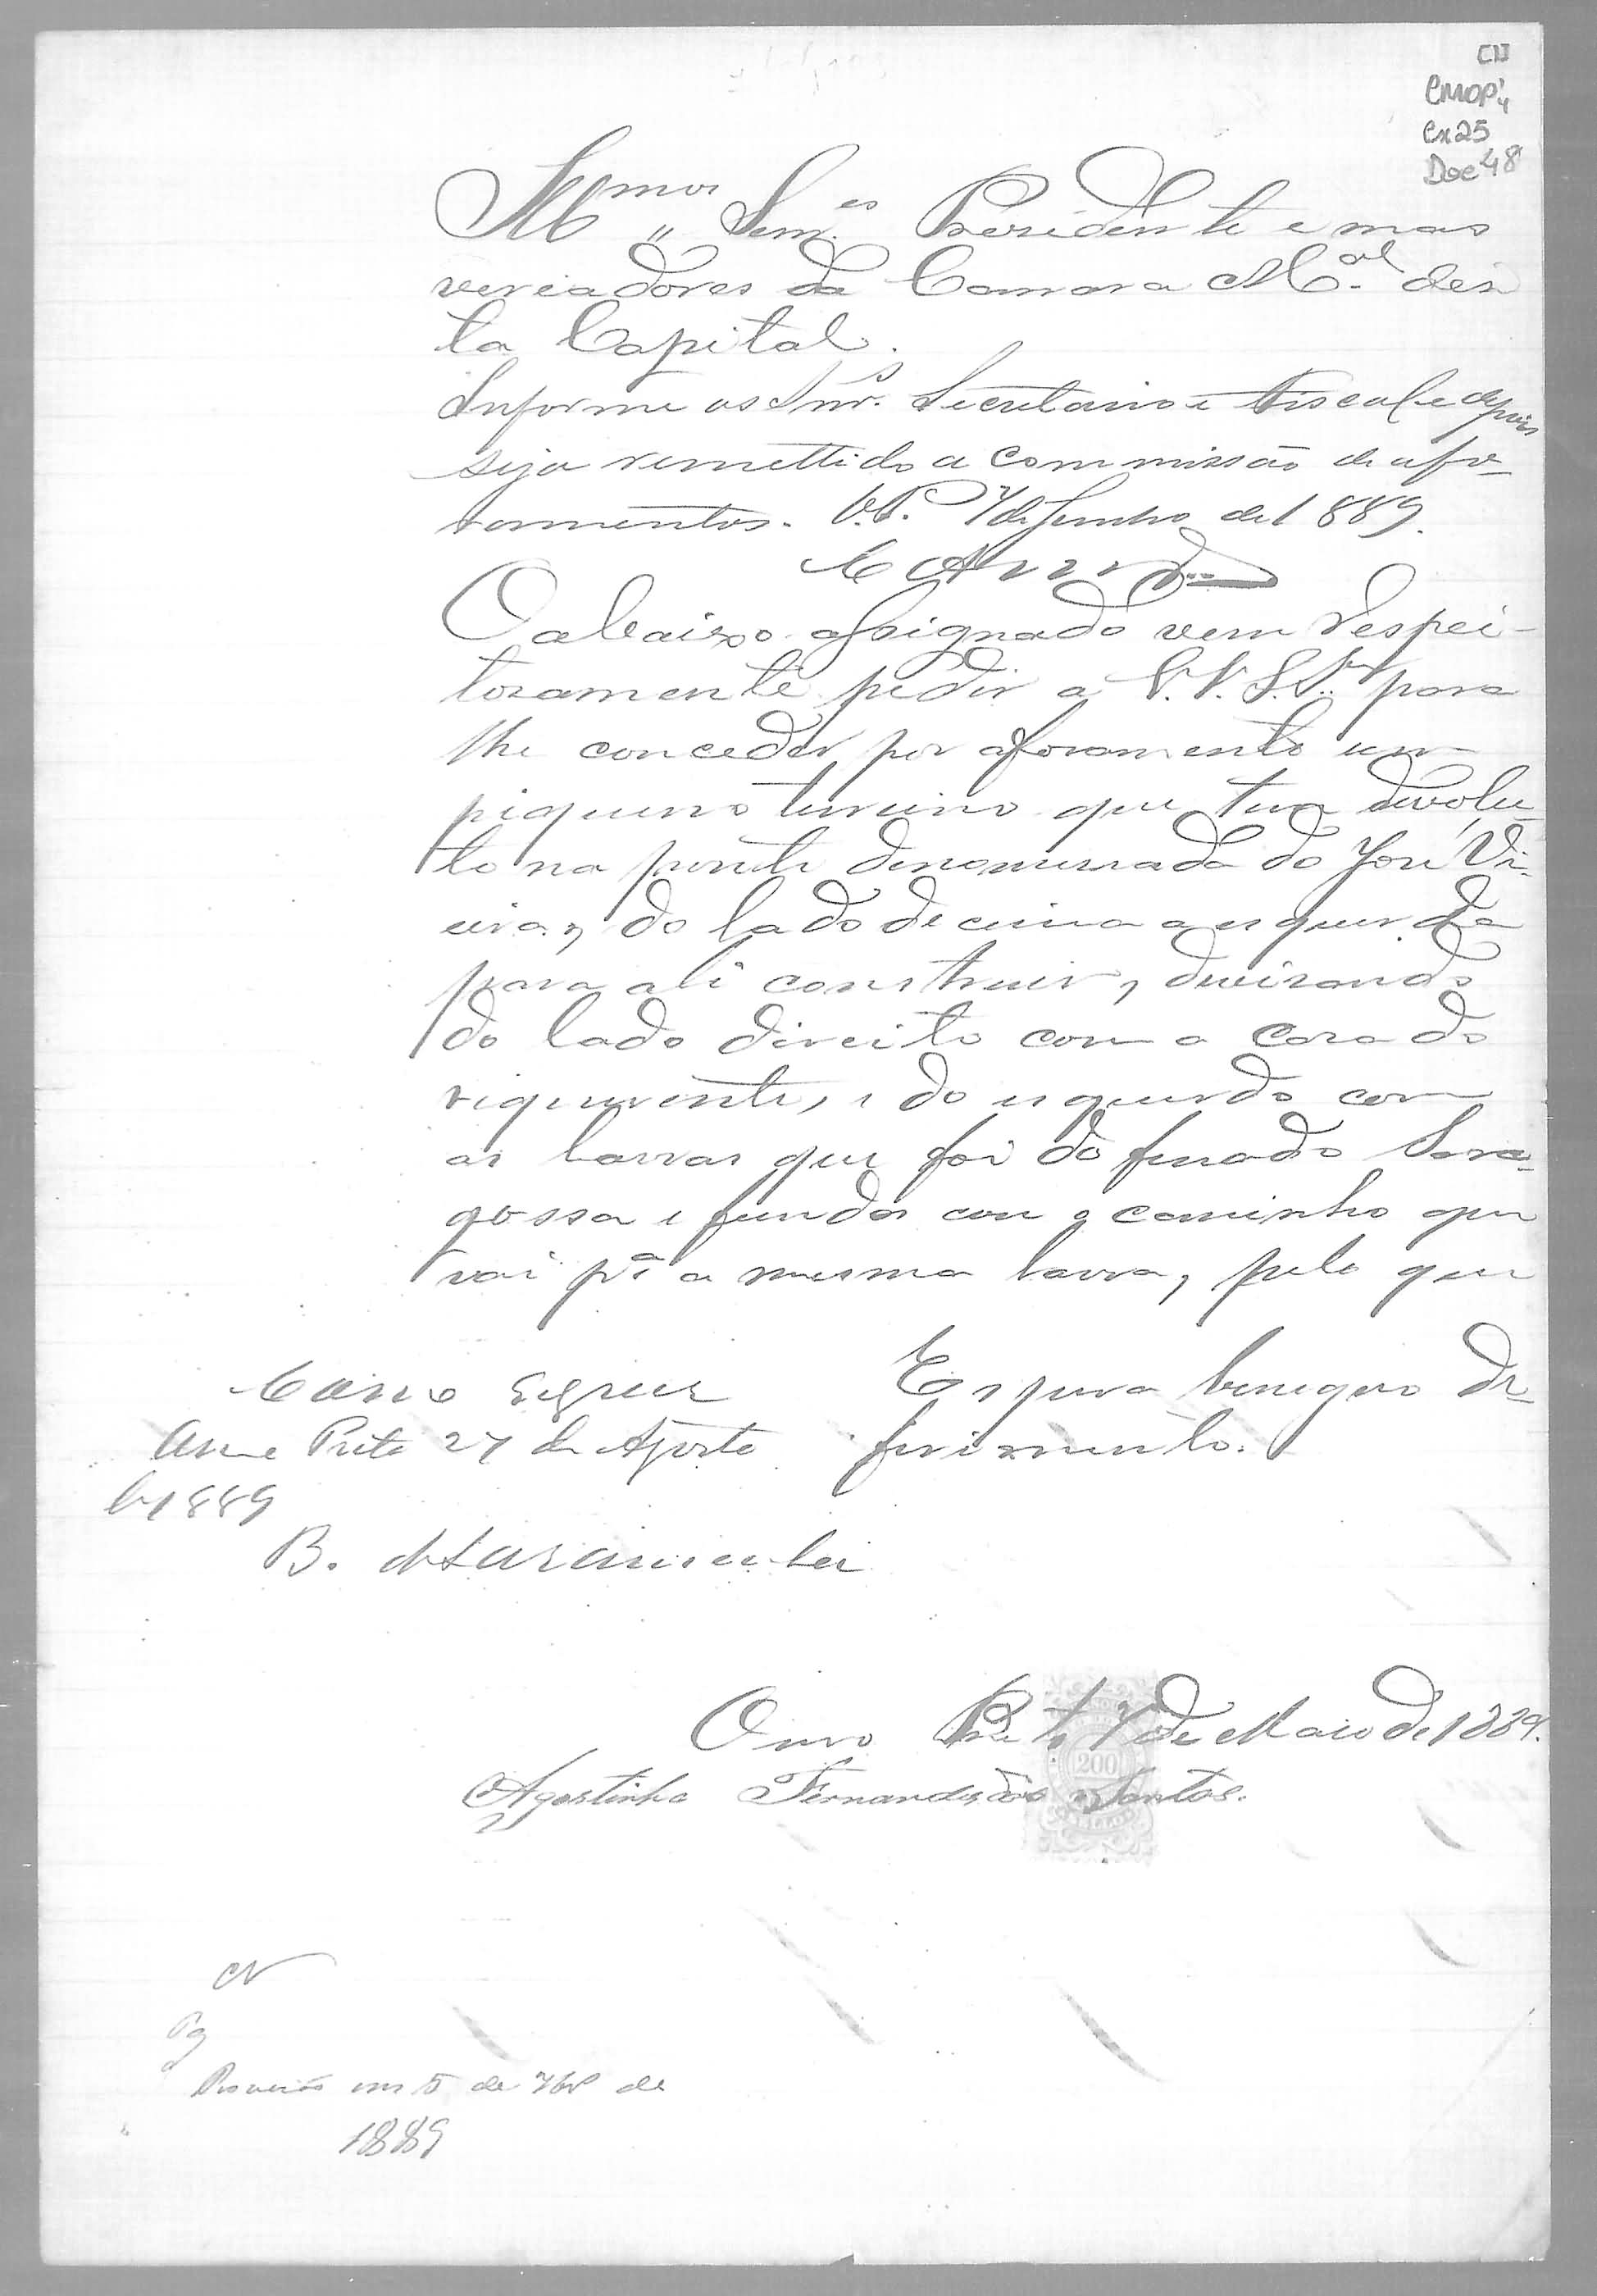 CMOP
Cx25
Doc 48
Illmos Senres Presidente e mas
veriadores da Camara Mcal des
ta Capital.
Informe os Snrs. Secretario e Fiscal e depois
seja remettido a commissão de afo-
ramentos. O.P. 7 de Junho de 1889.
O abaixo assignado vem respei-
tosamente pedir a V.V.S.S.as para
lhe conceder por aforamento um
piqueno terreino que tem devolu-
to na ponte denominada do José Vi-
eira, do lado de cima a esquerda
para ali construir, devisando
do lado direito com a casa do
riquerente, e do esquerdo com
as lavras que foi do finado Sara-
gossa e fundos com o caminho que
vai pª a mesma lavra, pelo que
Espera benigno de-
ferimento.
Como requer
Ouro Preto 27 de Agosto
de 1889
Ouro Preto 7 de Maio de 1889.
200
Agostinho Fernandes dos Santos.
Pg
em 5 de 7br de
1889